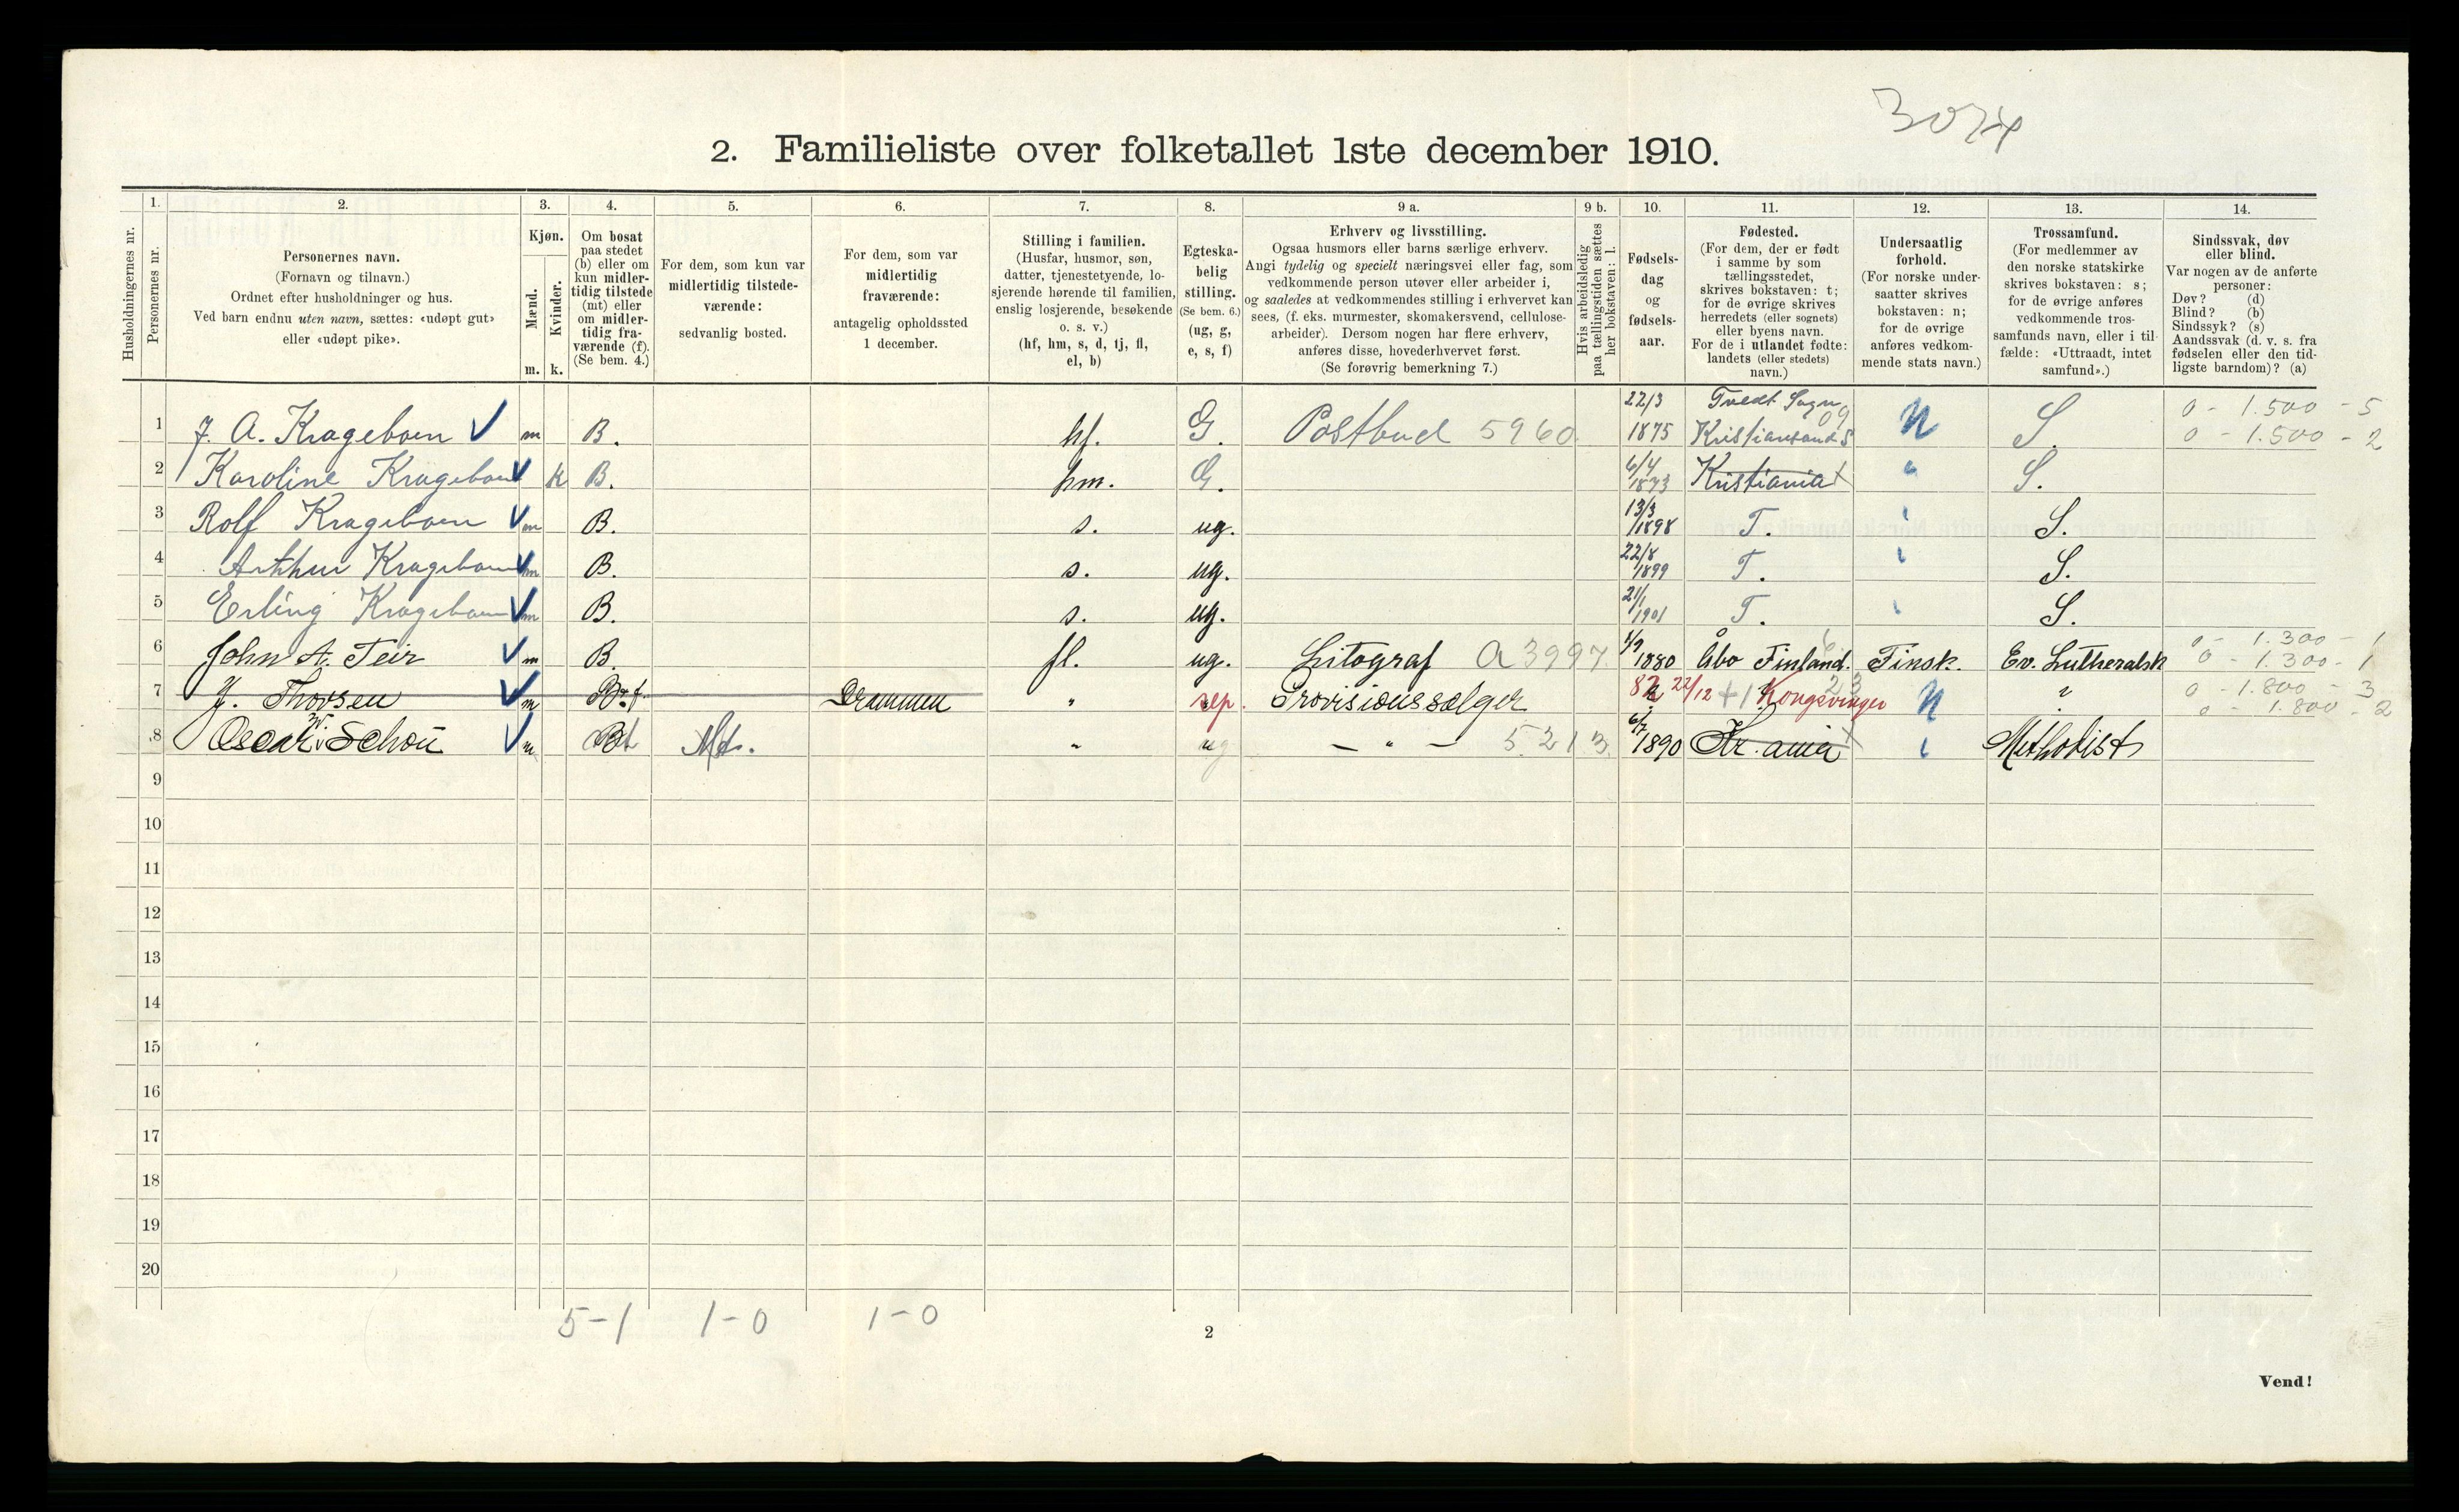 3074
2. Familieliste over folketallet 1ste december 1910.
1. 2. 3. 4. 5. 6. 7. 8. 9 a. 9 b. 10. 11. 12. 13. 14.
Husholdningernes nr.
Personernes nr.
Personernes navn.
(Fornavn og tilnavn.)
Ordnet efter husholdninger og hus.
Ved barn endnu uten navn, sættes: «udøpt gut»
eller «udøpt pike».
Kjøn.
Mænd.
Kvinder.
m. k.
Om bosat
paa stedet
(b) eller om
kun midler-
tidig tilstede
(mt) eller
om midler-
tidig fra-
værende (f).
(Se bem. 4.)
For dem, som kun var
midlertidig tilstede-
værende:
sedvanlig bosted.
For dem, som var
midlertidig
fraværende:
antagelig opholdssted
1 december.
Stilling i familien.
(Husfar, husmor, søn,
datter, tjenestetyende, lo-
sjerende hørende til familien,
enslig losjerende, besøkende
o. s. v.)
(hf, hm, s, d, tj, fl,
el, b)
Egteska-
belig
stilling.
(Se bem. 6.)
(ug, g,
e, s, f)
Erhverv og livsstilling.
Ogsaa husmors eller barns særlige erhverv.
Angi tydelig og specielt næringsvei eller fag, som
vedkommende person utøver eller arbeider i,
og saaledes at vedkommendes stilling i erhvervet kan
sees, (f. eks. murmester, skomakersvend, cellulose-
arbeider). Dersom nogen har flere erhverv,
anføres disse, hovederhvervet først.
(Se forøvrig bemerkning 7.)
Hvis arbeidsledig
paa tællingstiden sættes
her bokstaven: l.
Fødsels-
dag
og
fødsels-
aar.
Fødested.
(For dem, der er født
i samme by som
tællingsstedet,
skrives bokstaven: t;
for de øvrige skrives
herredets (eller sognets)
eller byens navn.
For de i utlandet fødte:
landets (eller stedets)
navn.)
Undersaatlig
forhold.
(For norske under-
saatter skrives
bokstaven: n;
for de øvrige
anføres vedkom-
mende stats navn.)
Trossamfund.
(For medlemmer av
den norske statskirke
skrives bokstaven: s;
for de øvrige anføres
vedkommende tros-
samfunds navn, eller i til-
fælde: «Uttraadt, intet
samfund».)
Sindssvak, døv
eller blind.
Var nogen av de anførte
personer:
Døv? (d)
Blind? (b)
Sindssyk? (s)
Aandssvak (d. v. s. fra
fødselen eller den tid-
ligste barndom)? (a)
22/3 Tvedt Sogn 09 0 - 1.500 - 5
1 J. A. Krageboen m B. hf. G. Postbud 5960 1875 Kristiansand S N S. 0 - 1.500 - 2
2 Karoline Krageboen k B. hm. G. 6/4 1873 Kristiania " S.
3 Rolf Krageboen m B. s. ug. 13/3 1898 T. S.
4 Arthur Krageboen m B. s. ug. 22/8 1899 T. S.
5 Erling Krageboen m B. s. ug. 21/1 1901 T. S.
0 - 1.300 - 1
6 John A. Teir m B. fl. ug. Litograf A 3997 1/9 1880 Åbo Finland. Finsk. Ev. Lutheralsk 0 - 1.300 - 1
7 J. Thorsen m Drammen " sep. Provisionssælger 82 22/12 Kongsvinger 23 N ? 0 - 1.800 - 3
0 - 1.800 - 2
8 Oscar W. Schou m Mt. " ug — " — 5213 6/7 1890 Kr.ania Methodist
9
10
11
12
13
14
15
16
17
18
19
20
5-1 1-0 1-0
2
Vend!